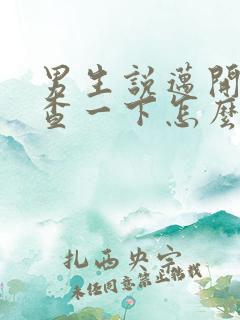 男生說邁開
查一下怎麼
扎西央宗
未经同意禁止转载